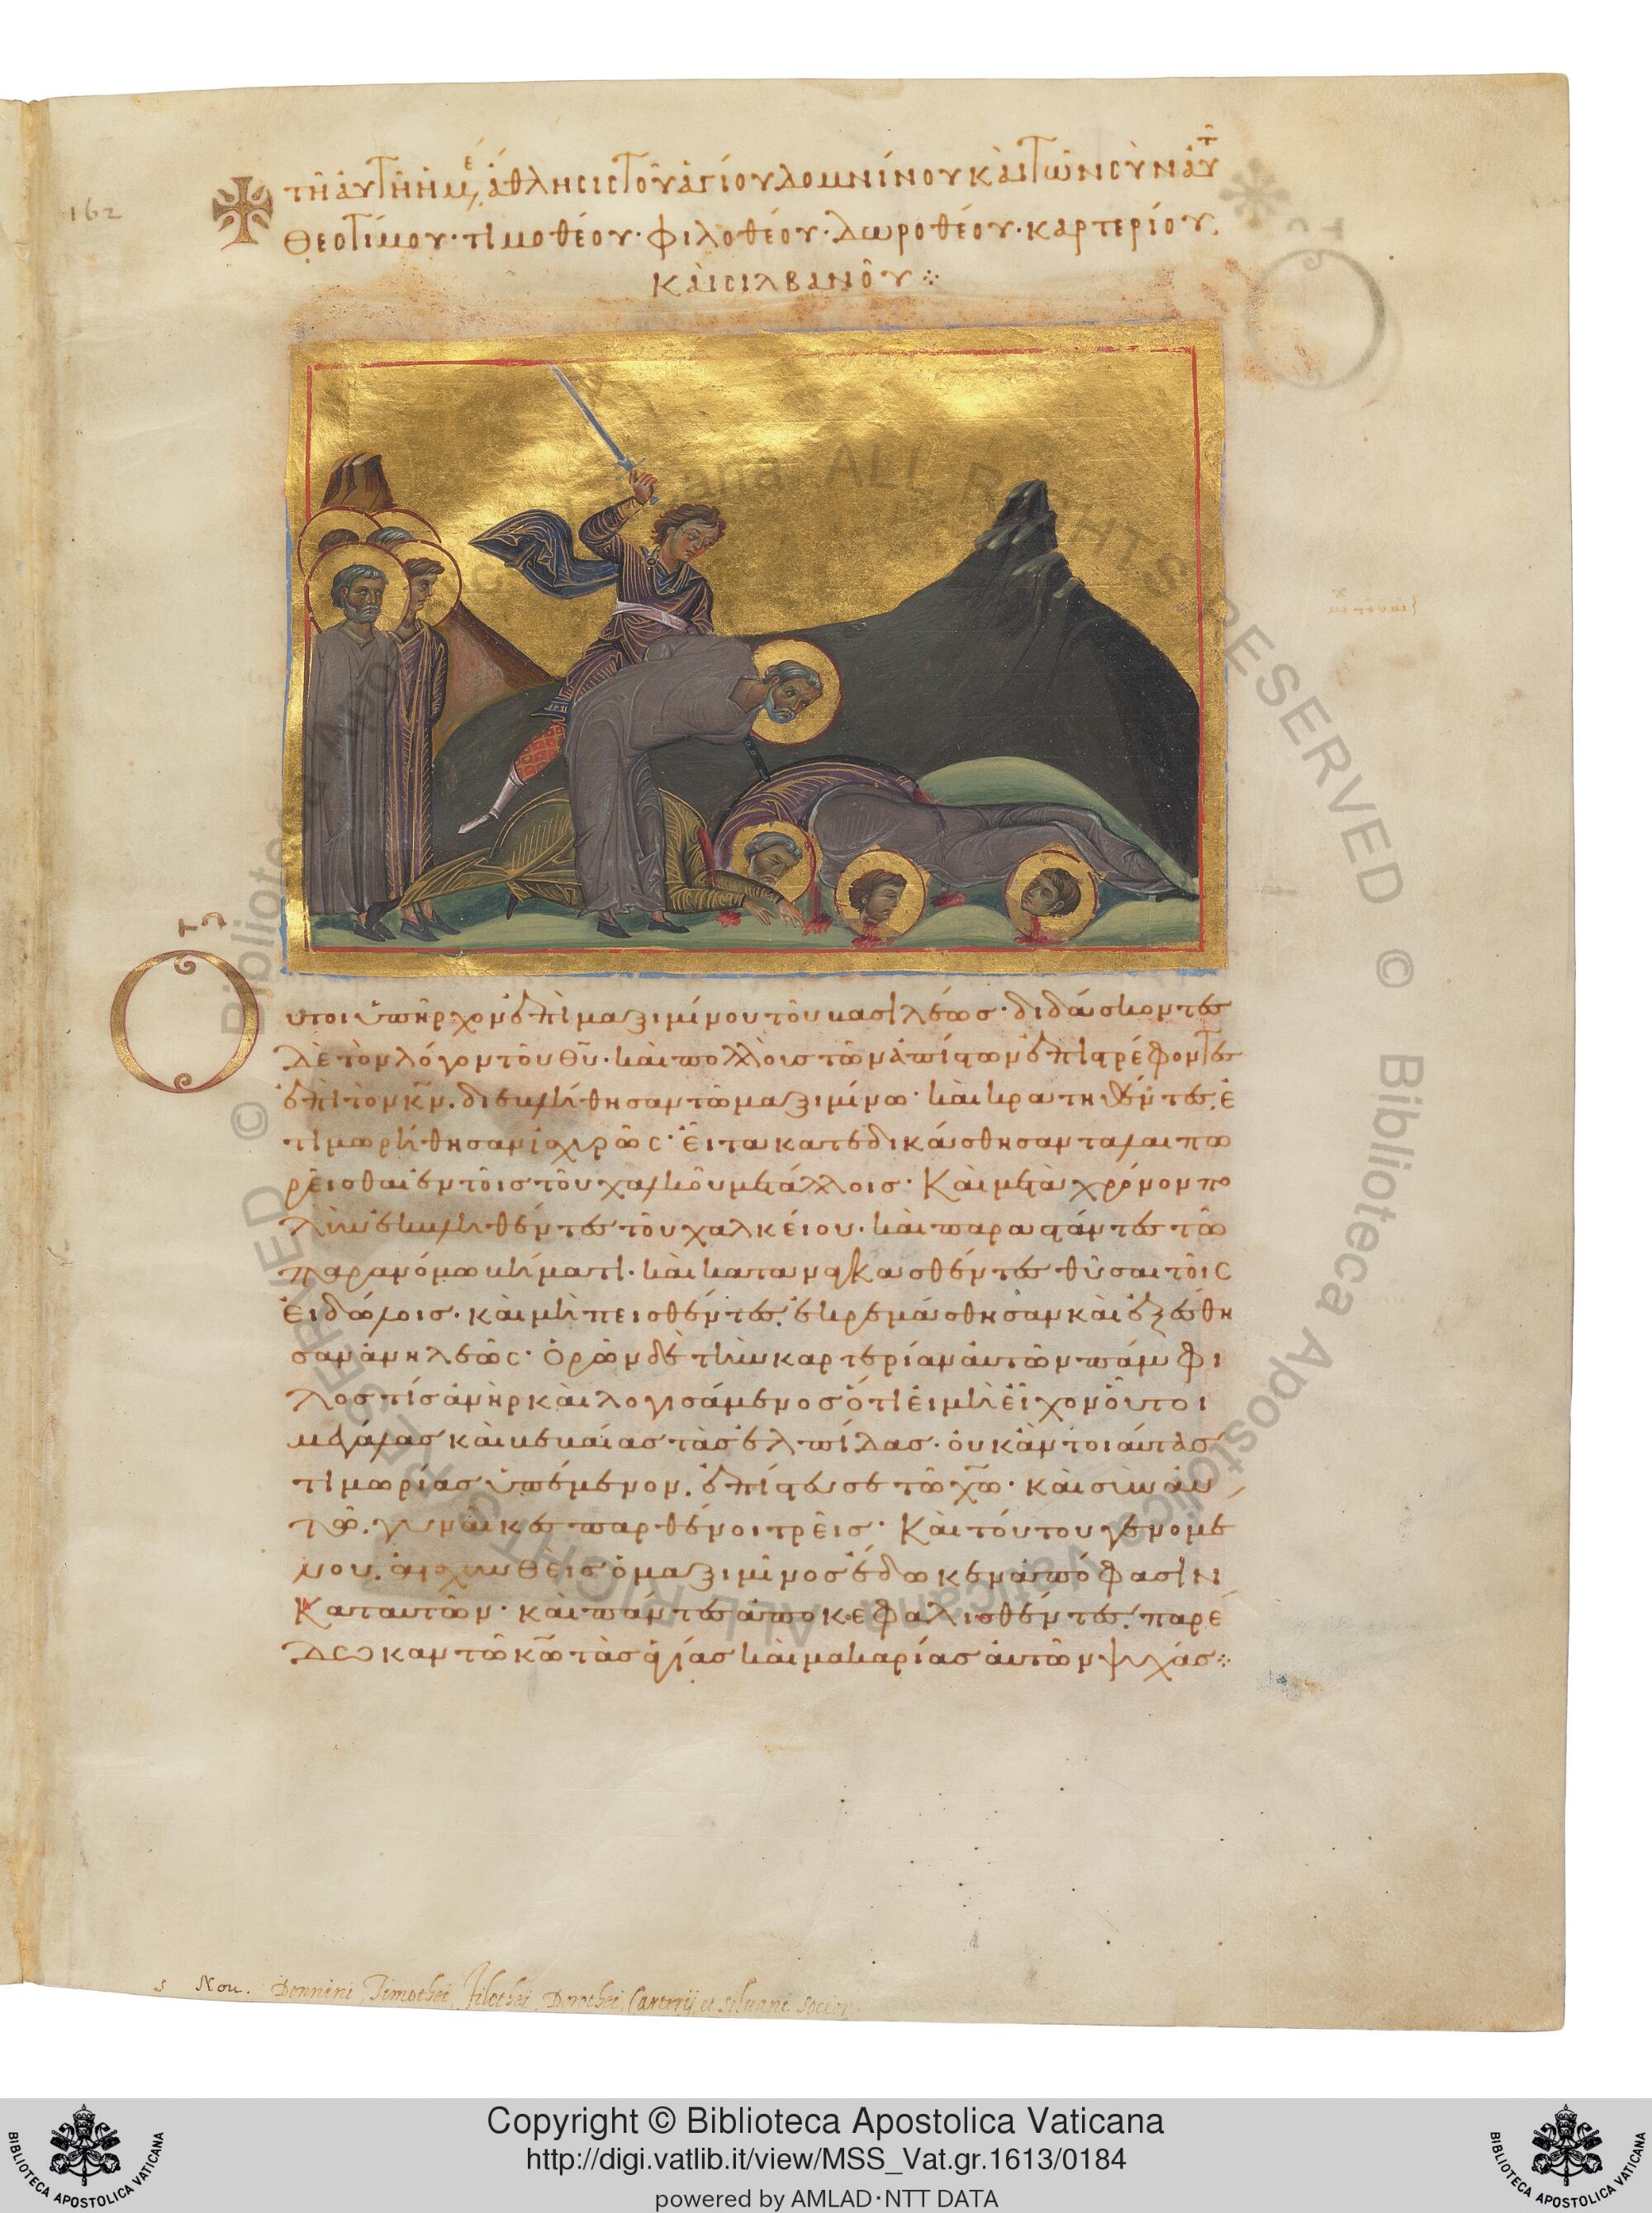 162
τῆ ἀυτῆ ἡμε, ἄθλησις τοῦ ἁγίου δομνίνου κὰι τῶν σὺν ἀυτ
θεοτίμου· τιμοθέου· φιλοθέου· δωροθέου· καρτερίου,
κὰι σιλβανοῦ ⁘
Ουτοι ὑπῆρχον ἐπὶ μαξιμίνου τοῦ βασιλέως· διδάσκοντες
δὲ τὸν λόγον τοῦ θυ· κὰι πολλοὶς τῶν ἀπίστων ἐπιστρέφοντες
ἐπὶ τὸν κν. διεβλήθησαν τῶ μαξιμίνω· κὰι κρατηθέντες, ἐ
τιμωρήθησαν ἰσχυρῶς· εἶτα κατεδικάσθησαν ταλαιπω
ρεῖσθαι ἐν τοῖς τοῦ χαλκοῦ μετάλλοις· Κὰι μετὰ χρόνον πο
λὺν ἐκβληθέντες τοῦ χαλκείου· κὰι παραστάντες τῶ
παρανόμω βήματι· κὰι καταναγκασθέντες θῦσαι τοῖς
εἰδώλοις· κὰι μὴ πεισθέντες, ἐκρεμάσθησαν κὰι ἐξέσθη
σαν ἀνηλεῶς· Ὁρῶν δὲ τὴν καρτερίαν ἀυτῶν πάμφι
λος τίς ἀνὴρ κὰι λογισάμενος ὅτι εἰ μὴ εἶχον οὗτοι
μεγάλας κὰι βεβαίας τὰς ἐλπίδας· οὐκ ἂν τοιάυτας
τιμωρίας ὑπέμενον, ἐπίστευσε τῶ χω· κὰι σὺν ἀυ
τῶ, γυναῖκες παρθένοι τρεῖς· Κὰι τούτου γενομέ
νου, ἀισχυνθεὶς ὁ μαξιμῖνος ἔδωκεν ἀπόφασιν
Κατ αυτῶν· κὰι πάντες ἀποκεφαλισθέντες, παρέ
δωκαν τῶ κω τὰς ἁγίας κὰι μακαρίας ἀυτῶν ψυχάς ⁘
5 Nou. Donnini Timothei filothei Dorothei Carterij et siluani socior
© Biblioteca Apostolica Vaticana ALL RIGHTS RESERVED © Biblioteca Apostolica Vaticana ALL RIGHTS RESERVED
Copyright © Biblioteca Apostolica Vaticana
http://digi.vatlib.it/view/MSS_Vat.gr.1613/0184
powered by AMLAD·NTT DATA
BIBLIOTECA APOSTOLICA VATICANA
BIBLIOTECA APOSTOLICA VATICANA